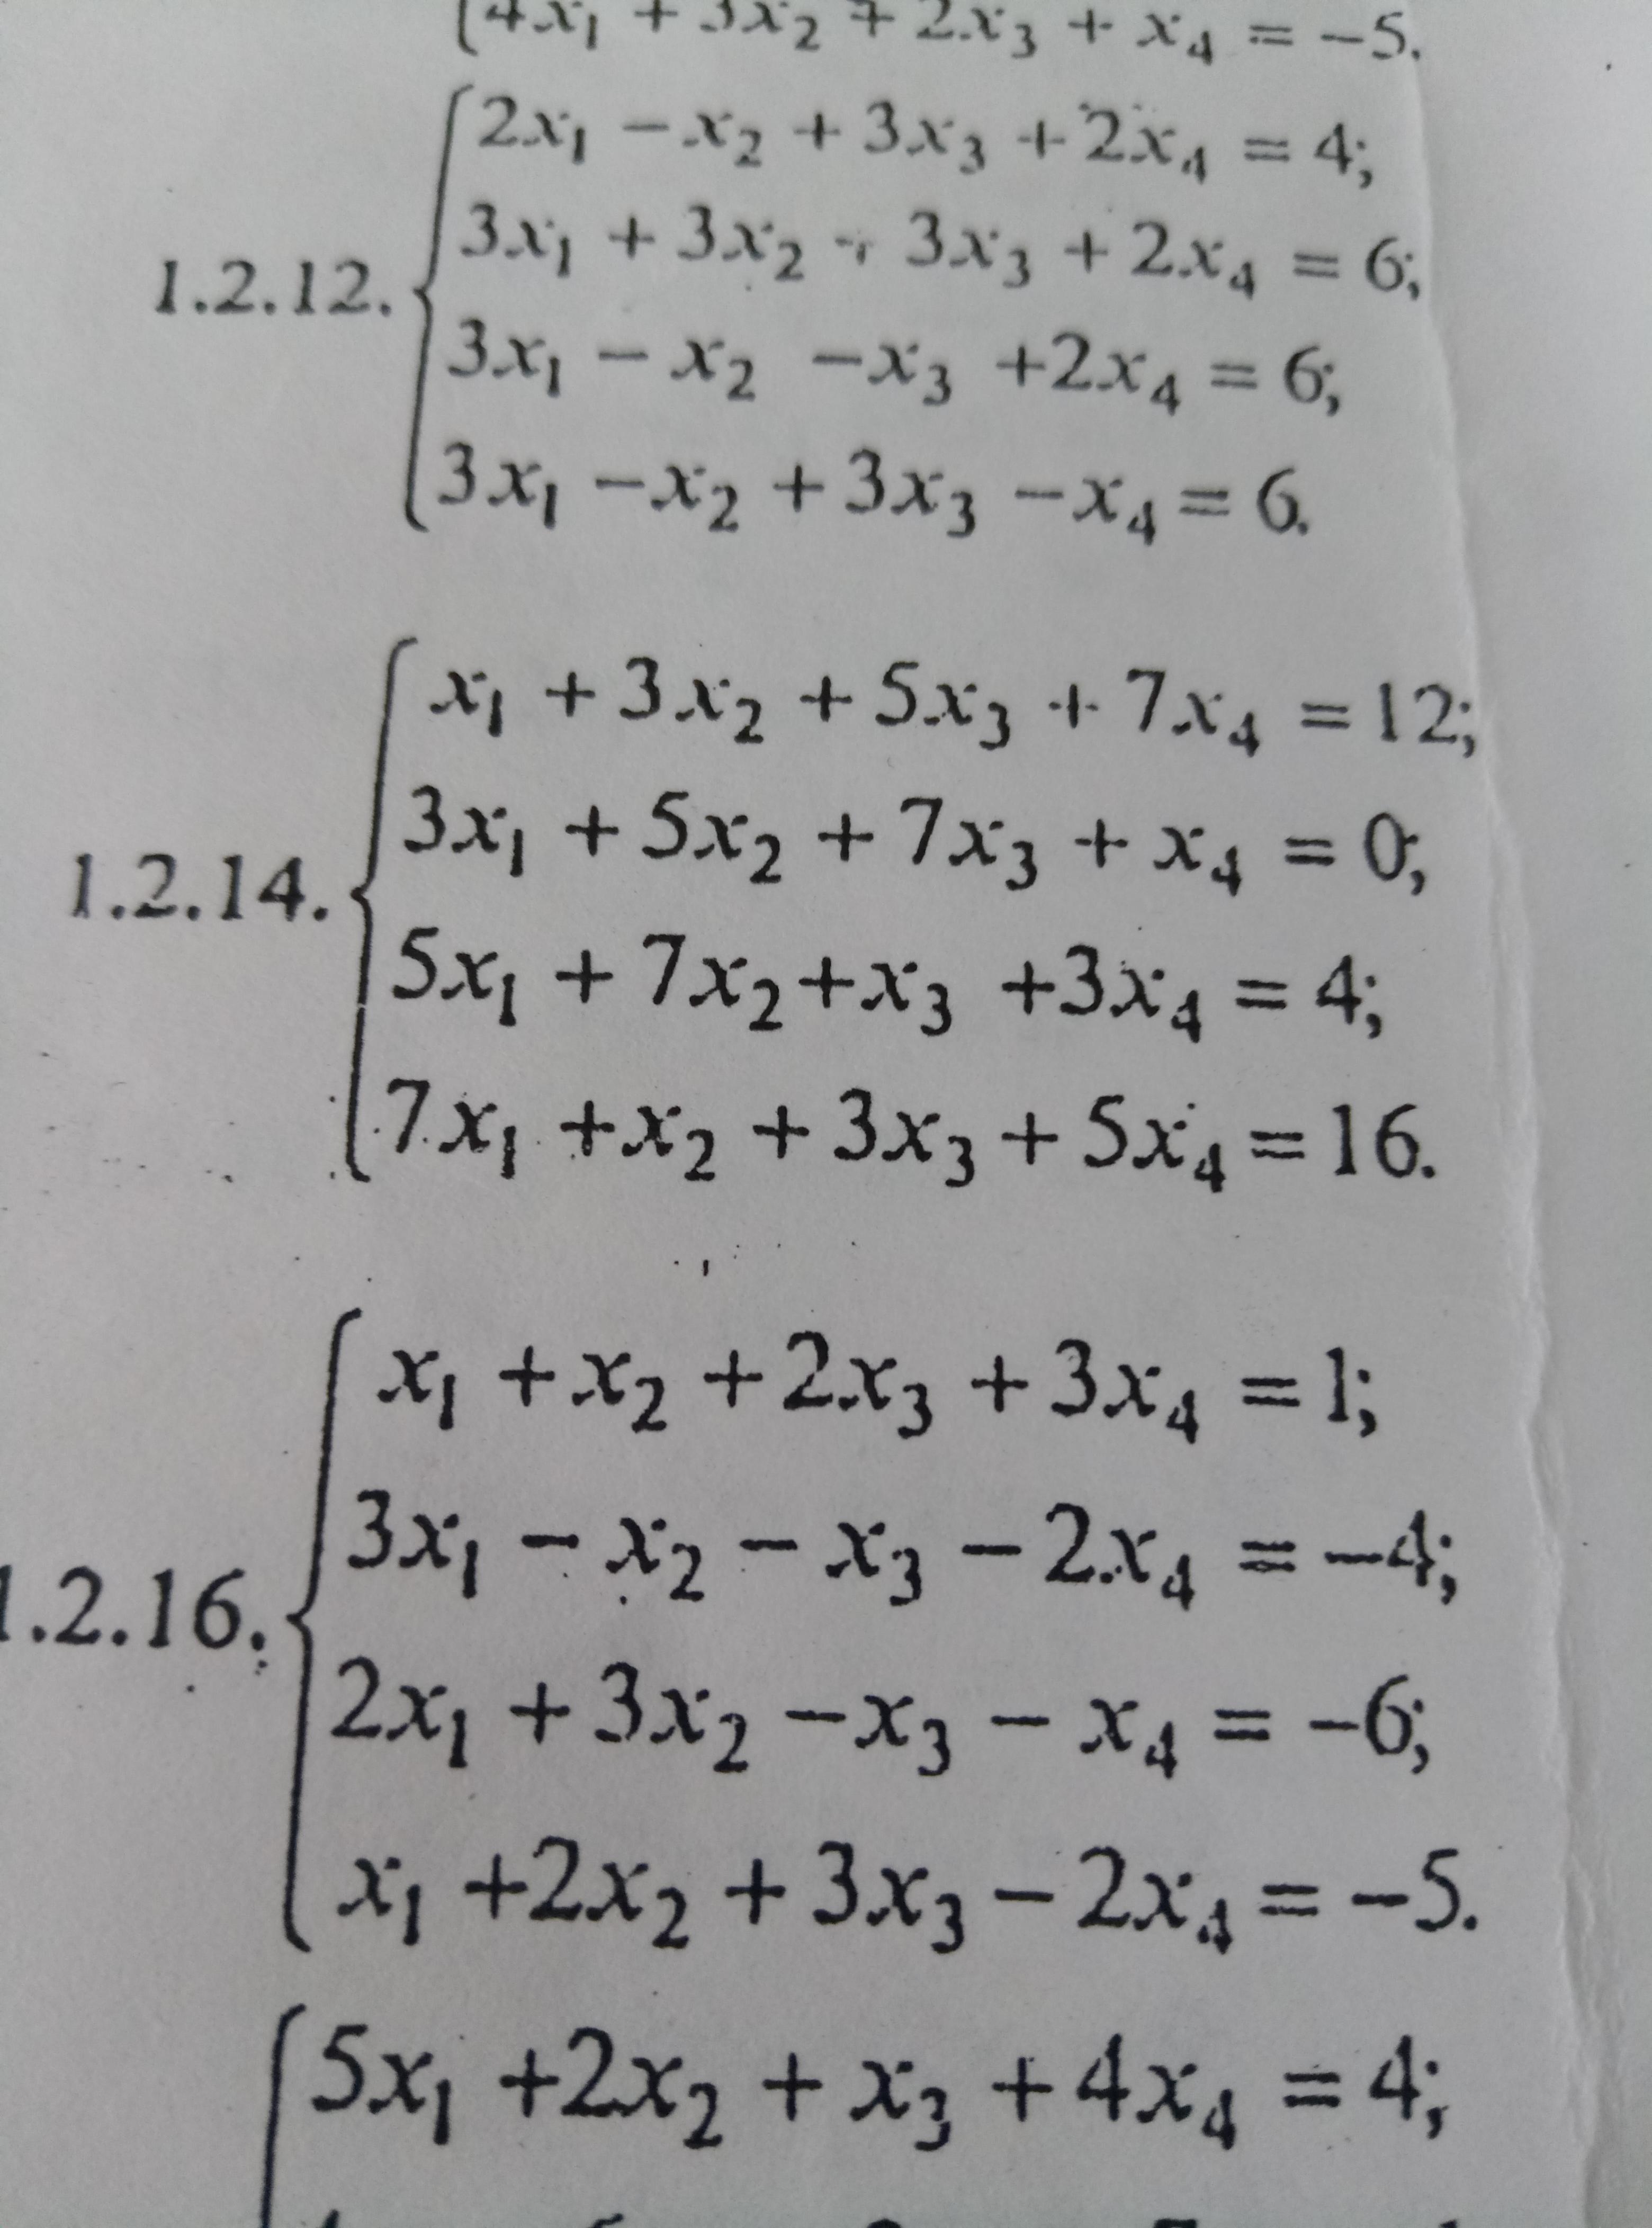 4x₁ + 3x₂ + 2x₃ + x₄ = −5.
2x₁ − x₂ + 3x₃ + 2x₄ = 4;
3x₁ + 3x₂ + 3x₃ + 2x₄ = 6;
1.2.12.
3x₁ − x₂ − x₃ + 2x₄ = 6;
3x₁ − x₂ + 3x₃ − x₄ = 6.
x₁ + 3x₂ + 5x₃ + 7x₄ = 12;
3x₁ + 5x₂ + 7x₃ + x₄ = 0;
1.2.14.
5x₁ + 7x₂ + x₃ + 3x₄ = 4;
7x₁ + x₂ + 3x₃ + 5x₄ = 16.
x₁ + x₂ + 2x₃ + 3x₄ = 1;
3x₁ − x₂ − x₃ − 2x₄ = −4;
1.2.16.
2x₁ + 3x₂ − x₃ − x₄ = −6;
x₁ + 2x₂ + 3x₃ − 2x₄ = −5.
5x₁ + 2x₂ + x₃ + 4x₄ = 4;